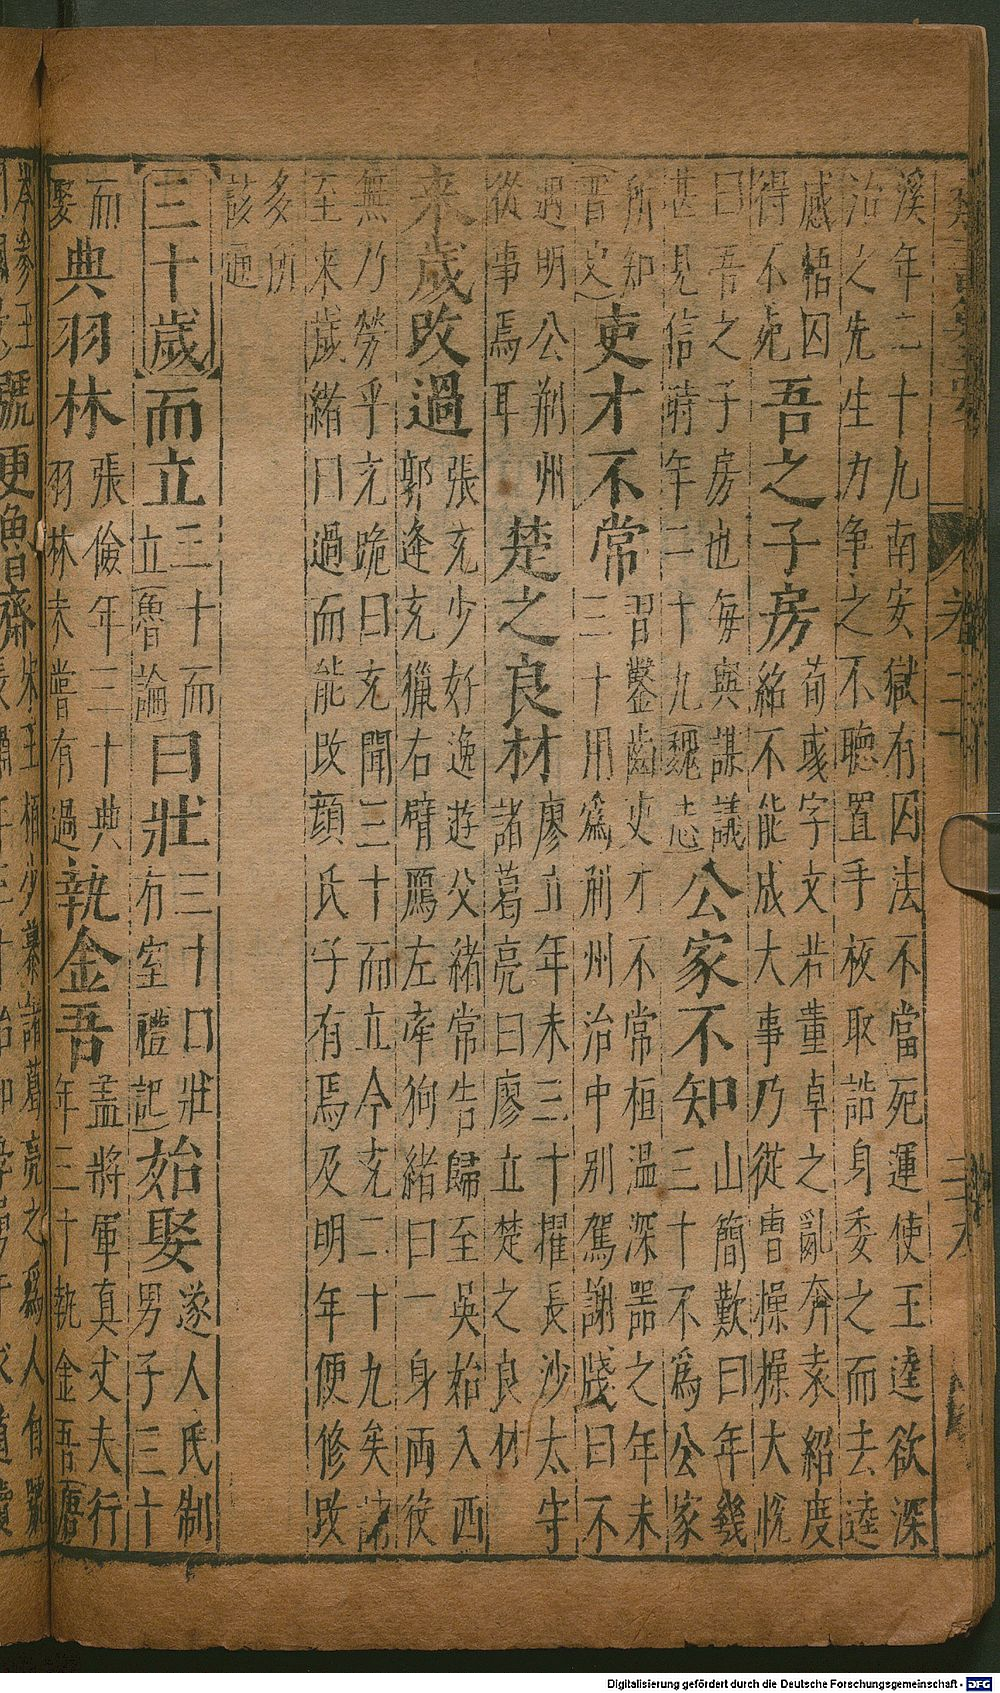 卷二
溪年二十九南安獄有囚法不當死運使王逵欲深
治之先生力争之不聽置手板取誥身委之而去逵
感悟囚
得不死
吾之子房
荀彧字文若董卓之亂奔袁紹度
紹不能成大事乃從曹操操大悅
曰吾之子房也每與謀議
甚見信時年二十九魏志
公家不知
山簡歎曰年幾
三十不爲公家
所知
晉史
吏才不常
習鑿齒吏才不常桓温深噐之年未
三十用爲荆州治中别駕謝牋曰不
遇明公荆州
從事焉耳
楚之良材
廖立年未三十擢長沙太守
諸葛亮曰廖立楚之良材
來歲改過
張充少好逸遊父緒常告歸至吳始入西
郭逢充獵右臂鷹左牽狗緒曰一身兩役
無乃勞乎充跪曰充聞三十而立今充二十九矣請
至來歲緒曰過而能改顔氏子有焉及明年便修改
多所
該通
三十歲
而立
三十而
立魯論
曰壯
三十曰壯
有室禮記
始娶
遂人氏制
男子三十
而
娶
典羽林
張儉年三十典
羽林未嘗有過
執金吾
孟將軍真丈夫行
年三十執金吾唐
號更魯齋
宋王柏少慕諸葛亮之爲人自號